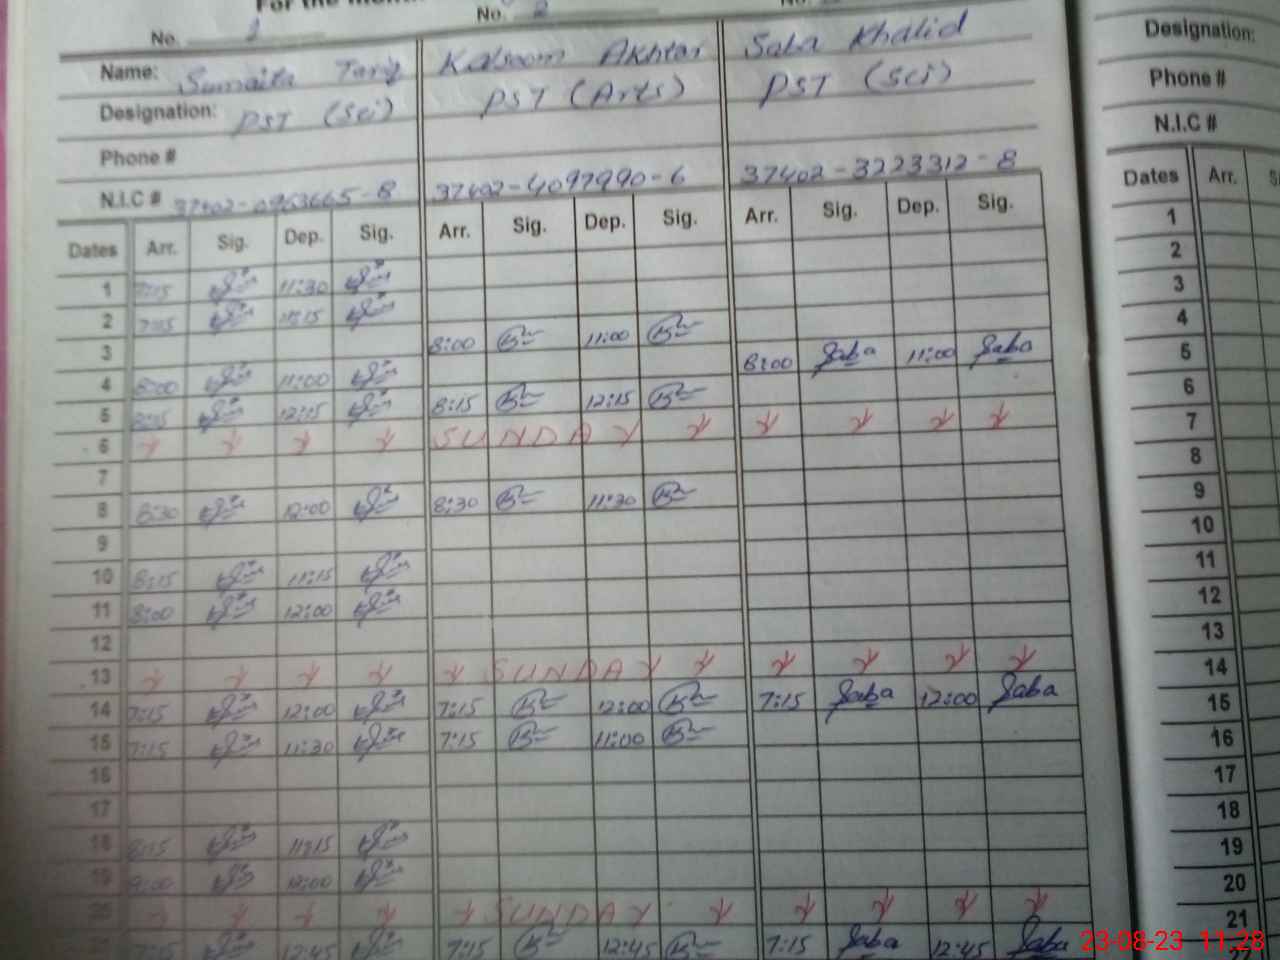 For the
No. 1 No. 2 No.
Name: Sumaita Tariq Kalsoom Akhtar Saba Khalid
Designation: PST (Sci) PST (Arts) PST (Sci)
Phone #
N.I.C # 37402-0963665-8 37402-4097990-6 37402-3223312-8
Dates Arr. Sig. Dep. Sig. Arr. Sig. Dep. Sig. Arr. Sig. Dep. Sig.
1 7:15 11:30
2 7:15 11:15
3 8:00 11:00 8:00 Saba 11:00 Saba
4 8:00 11:00
5 8:15 12:15 8:15 12:15
6 SUNDAY
7
8 8:30 12:00 8:30 11:30
9
10 8:15 11:15
11 8:00 12:00
12
13 SUNDAY
14 7:15 12:00 7:15 12:00 7:15 Saba 12:00 Saba
15 7:15 11:30 7:15 11:00
16
17
18 8:15 11:15
19 9:00 12:00
20 SUNDAY
21 7:15 12:45 7:15 12:45 7:15 Saba 12:45 Saba
Designation:
Phone #
N.I.C #
Dates Arr.
1
2
3
4
5
6
7
8
9
10
11
12
13
14
15
16
17
18
19
20
21
23-08-23 11:28